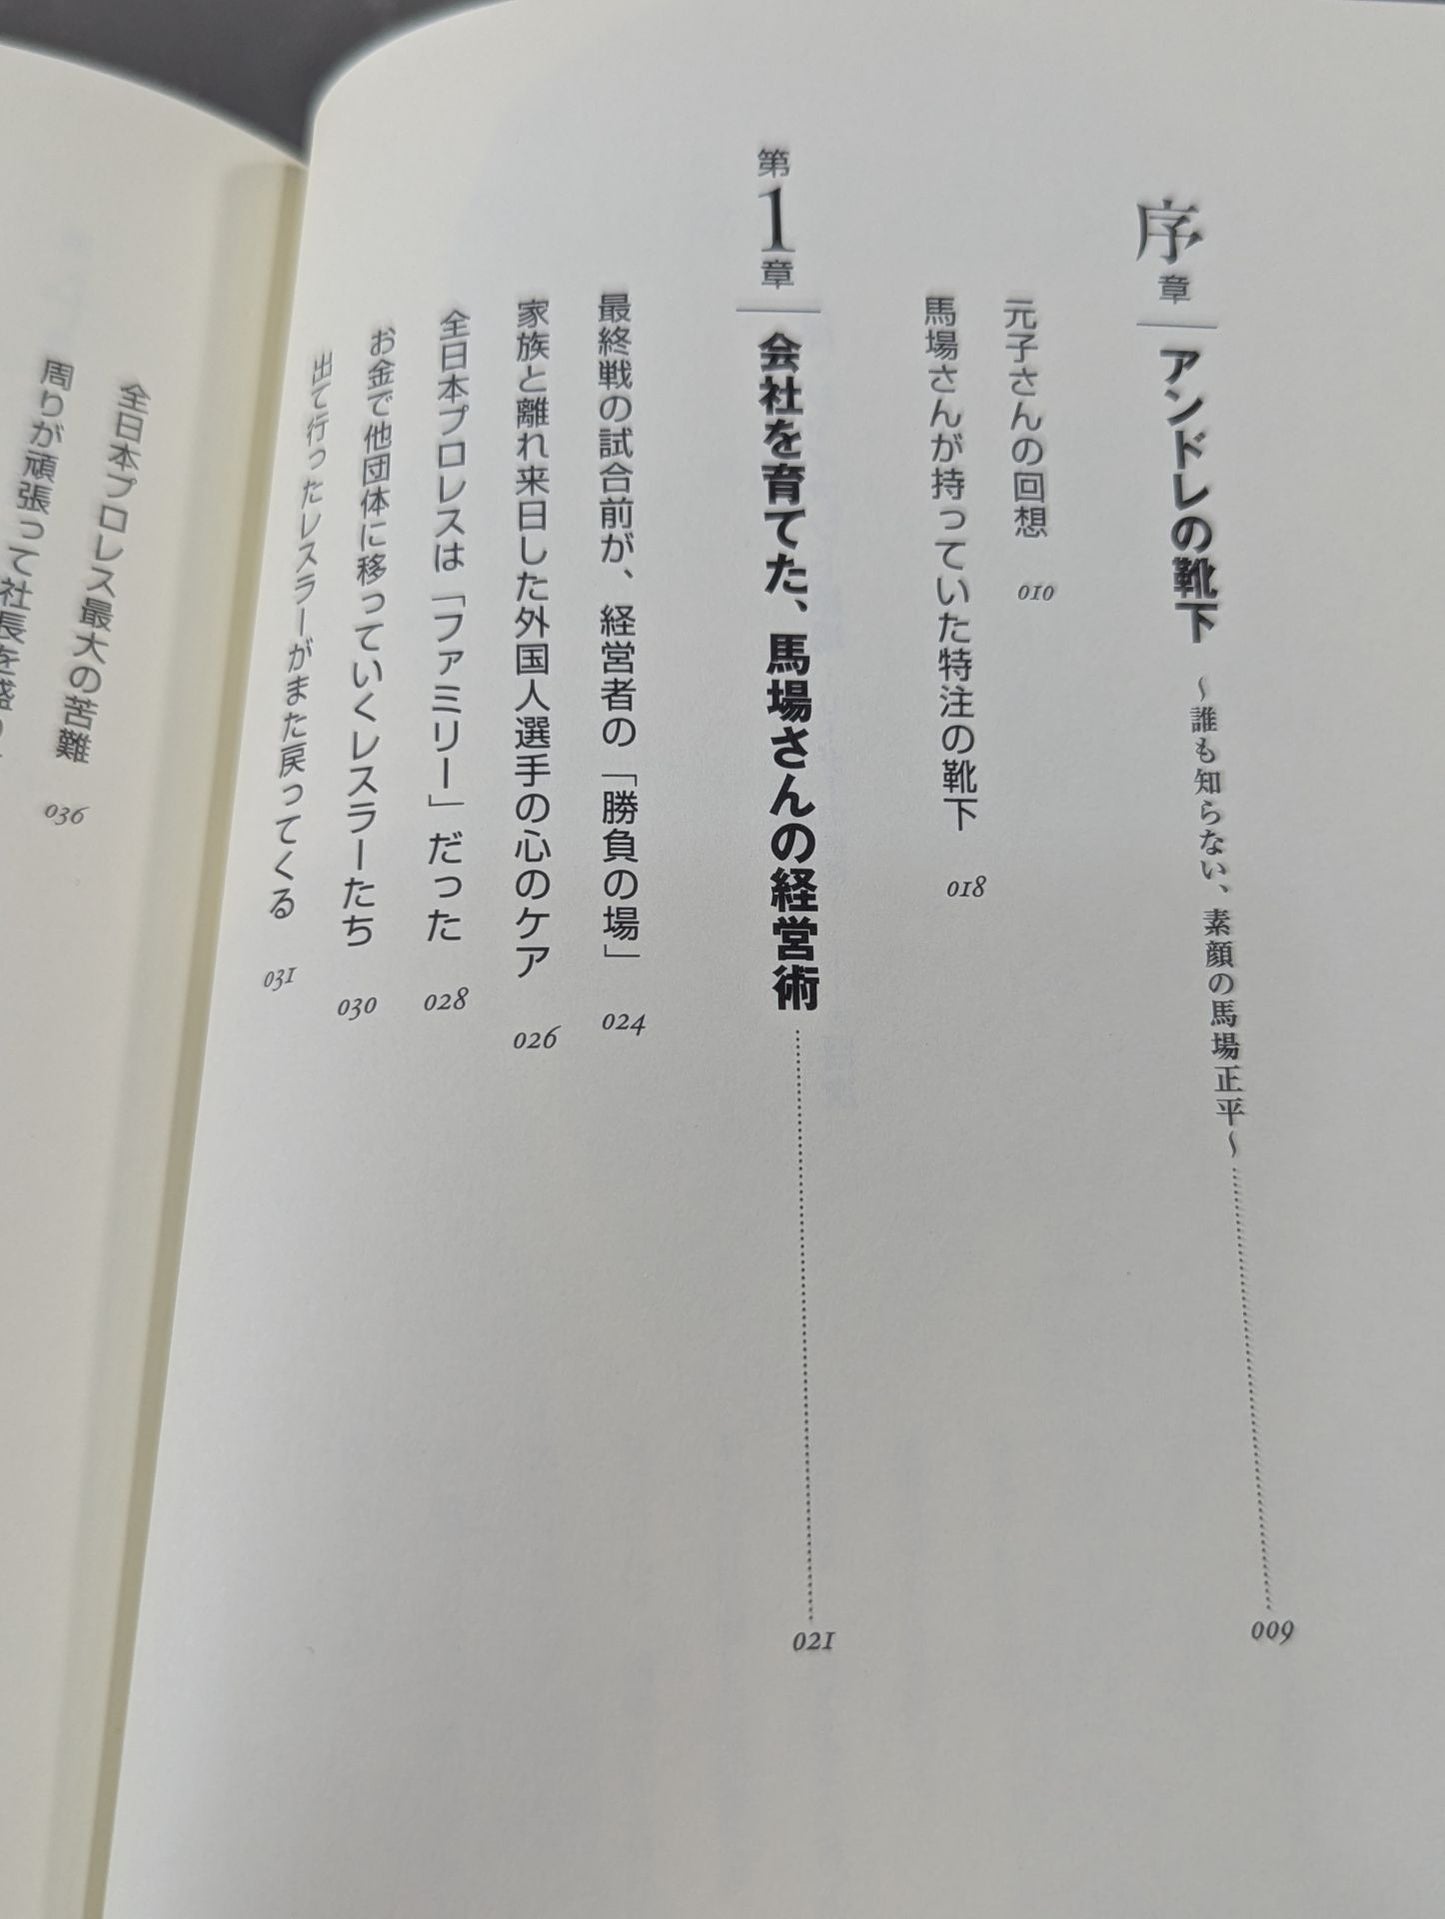 序章 アンドレの靴下 〜誰も知らない、素顔の馬場正平〜 009
元子さんの回想 010
馬場さんが持っていた特注の靴下 018
第1章 会社を育てた、馬場さんの経営術 021
最終戦の試合前が、経営者の「勝負の場」 024
家族と離れ来日した外国人選手の心のケア 026
全日本プロレスは「ファミリー」だった 028
お金で他団体に移っていくレスラーたち 030
出て行ったレスラーがまた戻ってくる 031
全日本プロレス最大の苦難 036
周りが頑張って社長を盛り